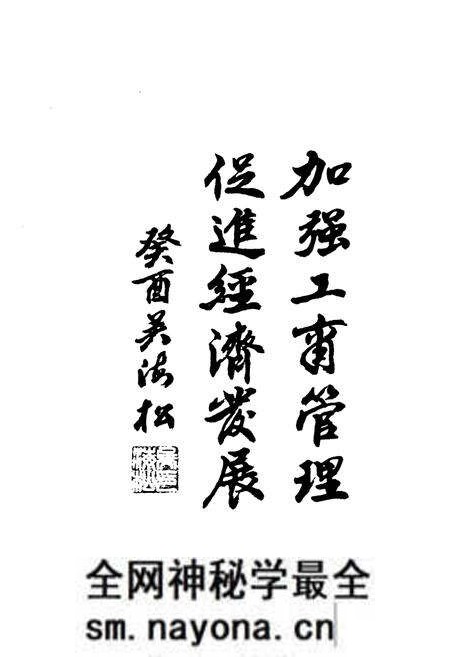 加强工商管理
促進經濟發展
癸酉吴海松
全网神秘学最全
sm.nayona.cn